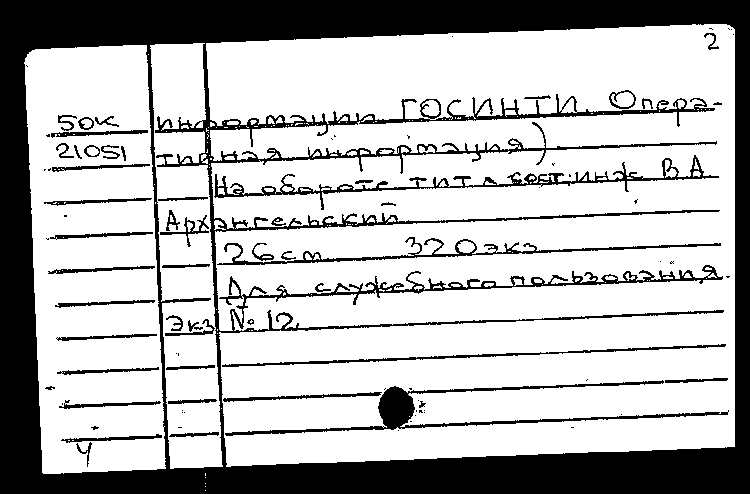 2
50к информации ГОСИНТИ. Опера-
21051 тивная информация)
На обороте тит л сост: инж В А
Архангельский
26см 320экз
Для служебного пользования.
Экз № 12.
Ч